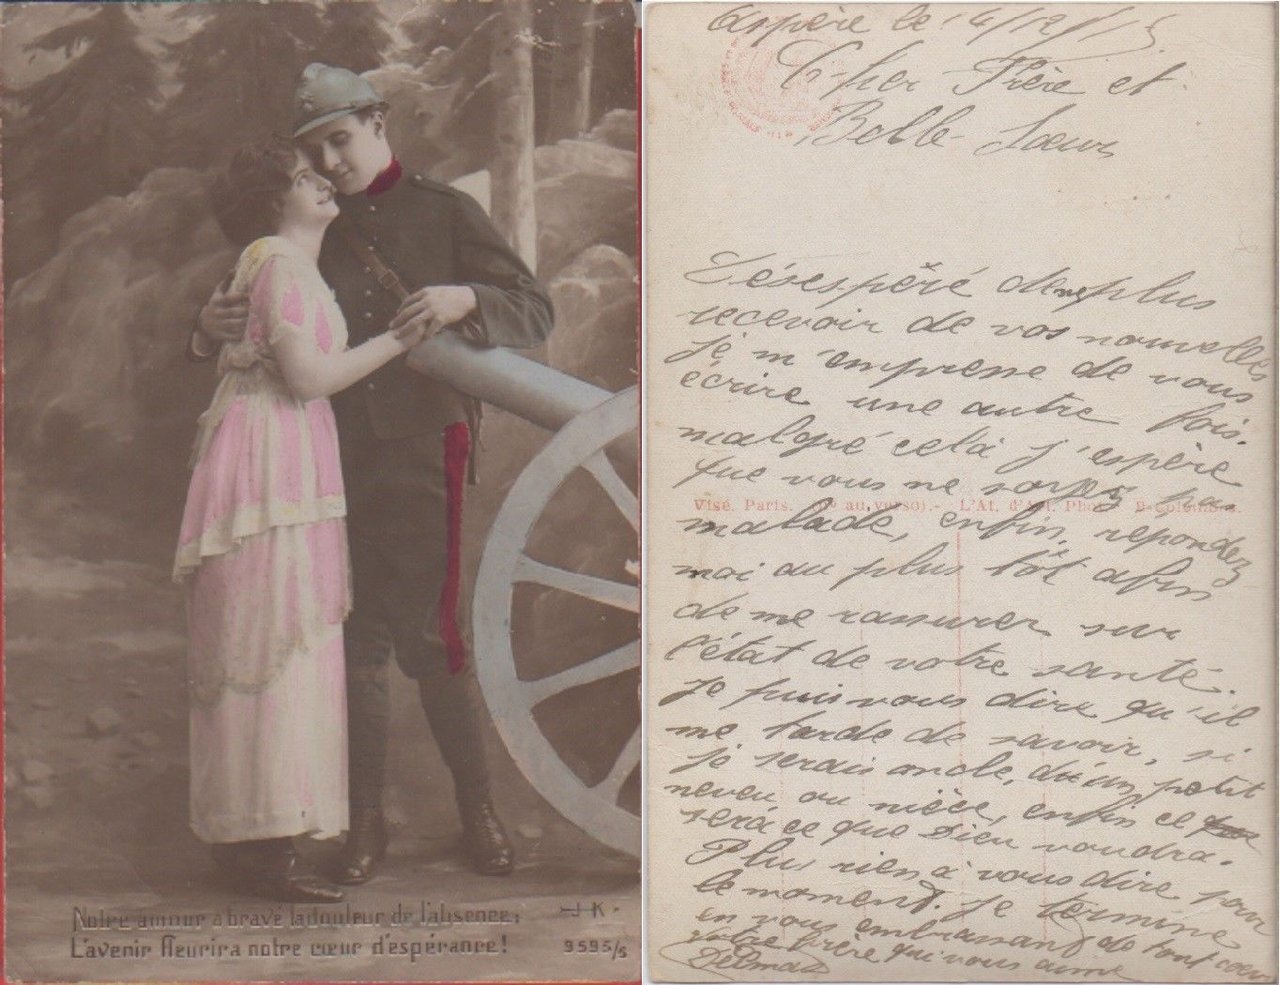 Notre amour a bravé la douleur de l'absence;
L'avenir fleurira notre cœur d'espérance!
JK
9595/5
le 14/12/15
Cher Frère et
Belle-Sœur
Désespéré de ne plus
recevoir de vos nouvelles
je m'empresse de vous
écrire une autre fois.
malgré celà j'espère
que vous ne soyez pas
malade, enfin, repondez
moi au plus tôt afin
de me rassurer sur
l'état de votre santé.
Je puis vous dire qu'il
me tarde de savoir, si
je serais oncle, d'un petit
neveu ou nièce, enfin ce
sera ce que Dieu voudra.
Plus rien à vous dire pour
le moment. Je termine
en vous embrassant de tout cœur
Votre frère qui vous aime
Delmas
Visé. Paris. (No au verso).- L'At. d'Art. Phot.